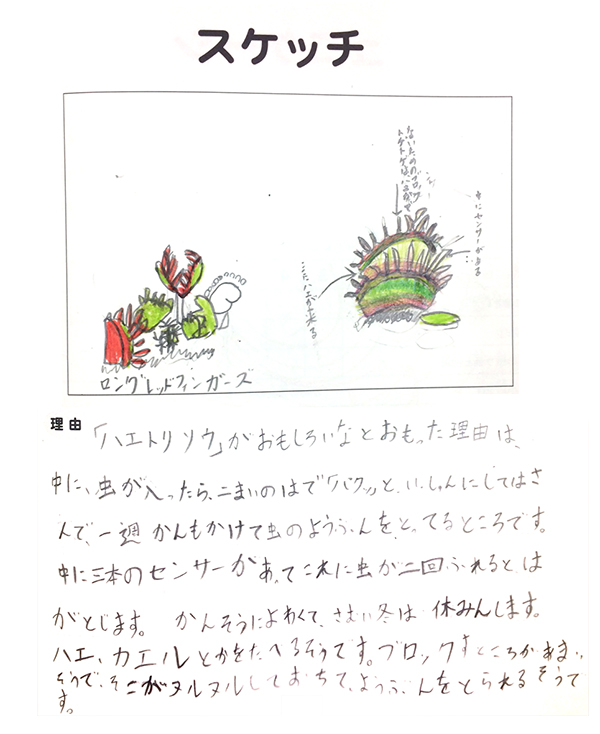 スケッチ
トゲトゲは、ハエがでれ
ないためのブロック
中にセンサーがある
ここにハエが来る
ロングレッドフィンガーズ
理由
「ハエトリソウ」がおもしろいなとおもった理由は、
中に、虫が入ったら、二まいのはで「バクッ」と、いっしゅんにしてはさ
んで、一週かんもかけて虫のようぶんを、とってるところです。
中に三本のセンサーがあってこれに虫が二回ふれるとは
がとじます。 かんそうによわくて、さむい冬は休みんします。
ハエ、カエルとかをたべるそうです。ブロックすところがあまい
そうで、そこがヌルヌルしておちて、ようぶんをとられるそうで
す。